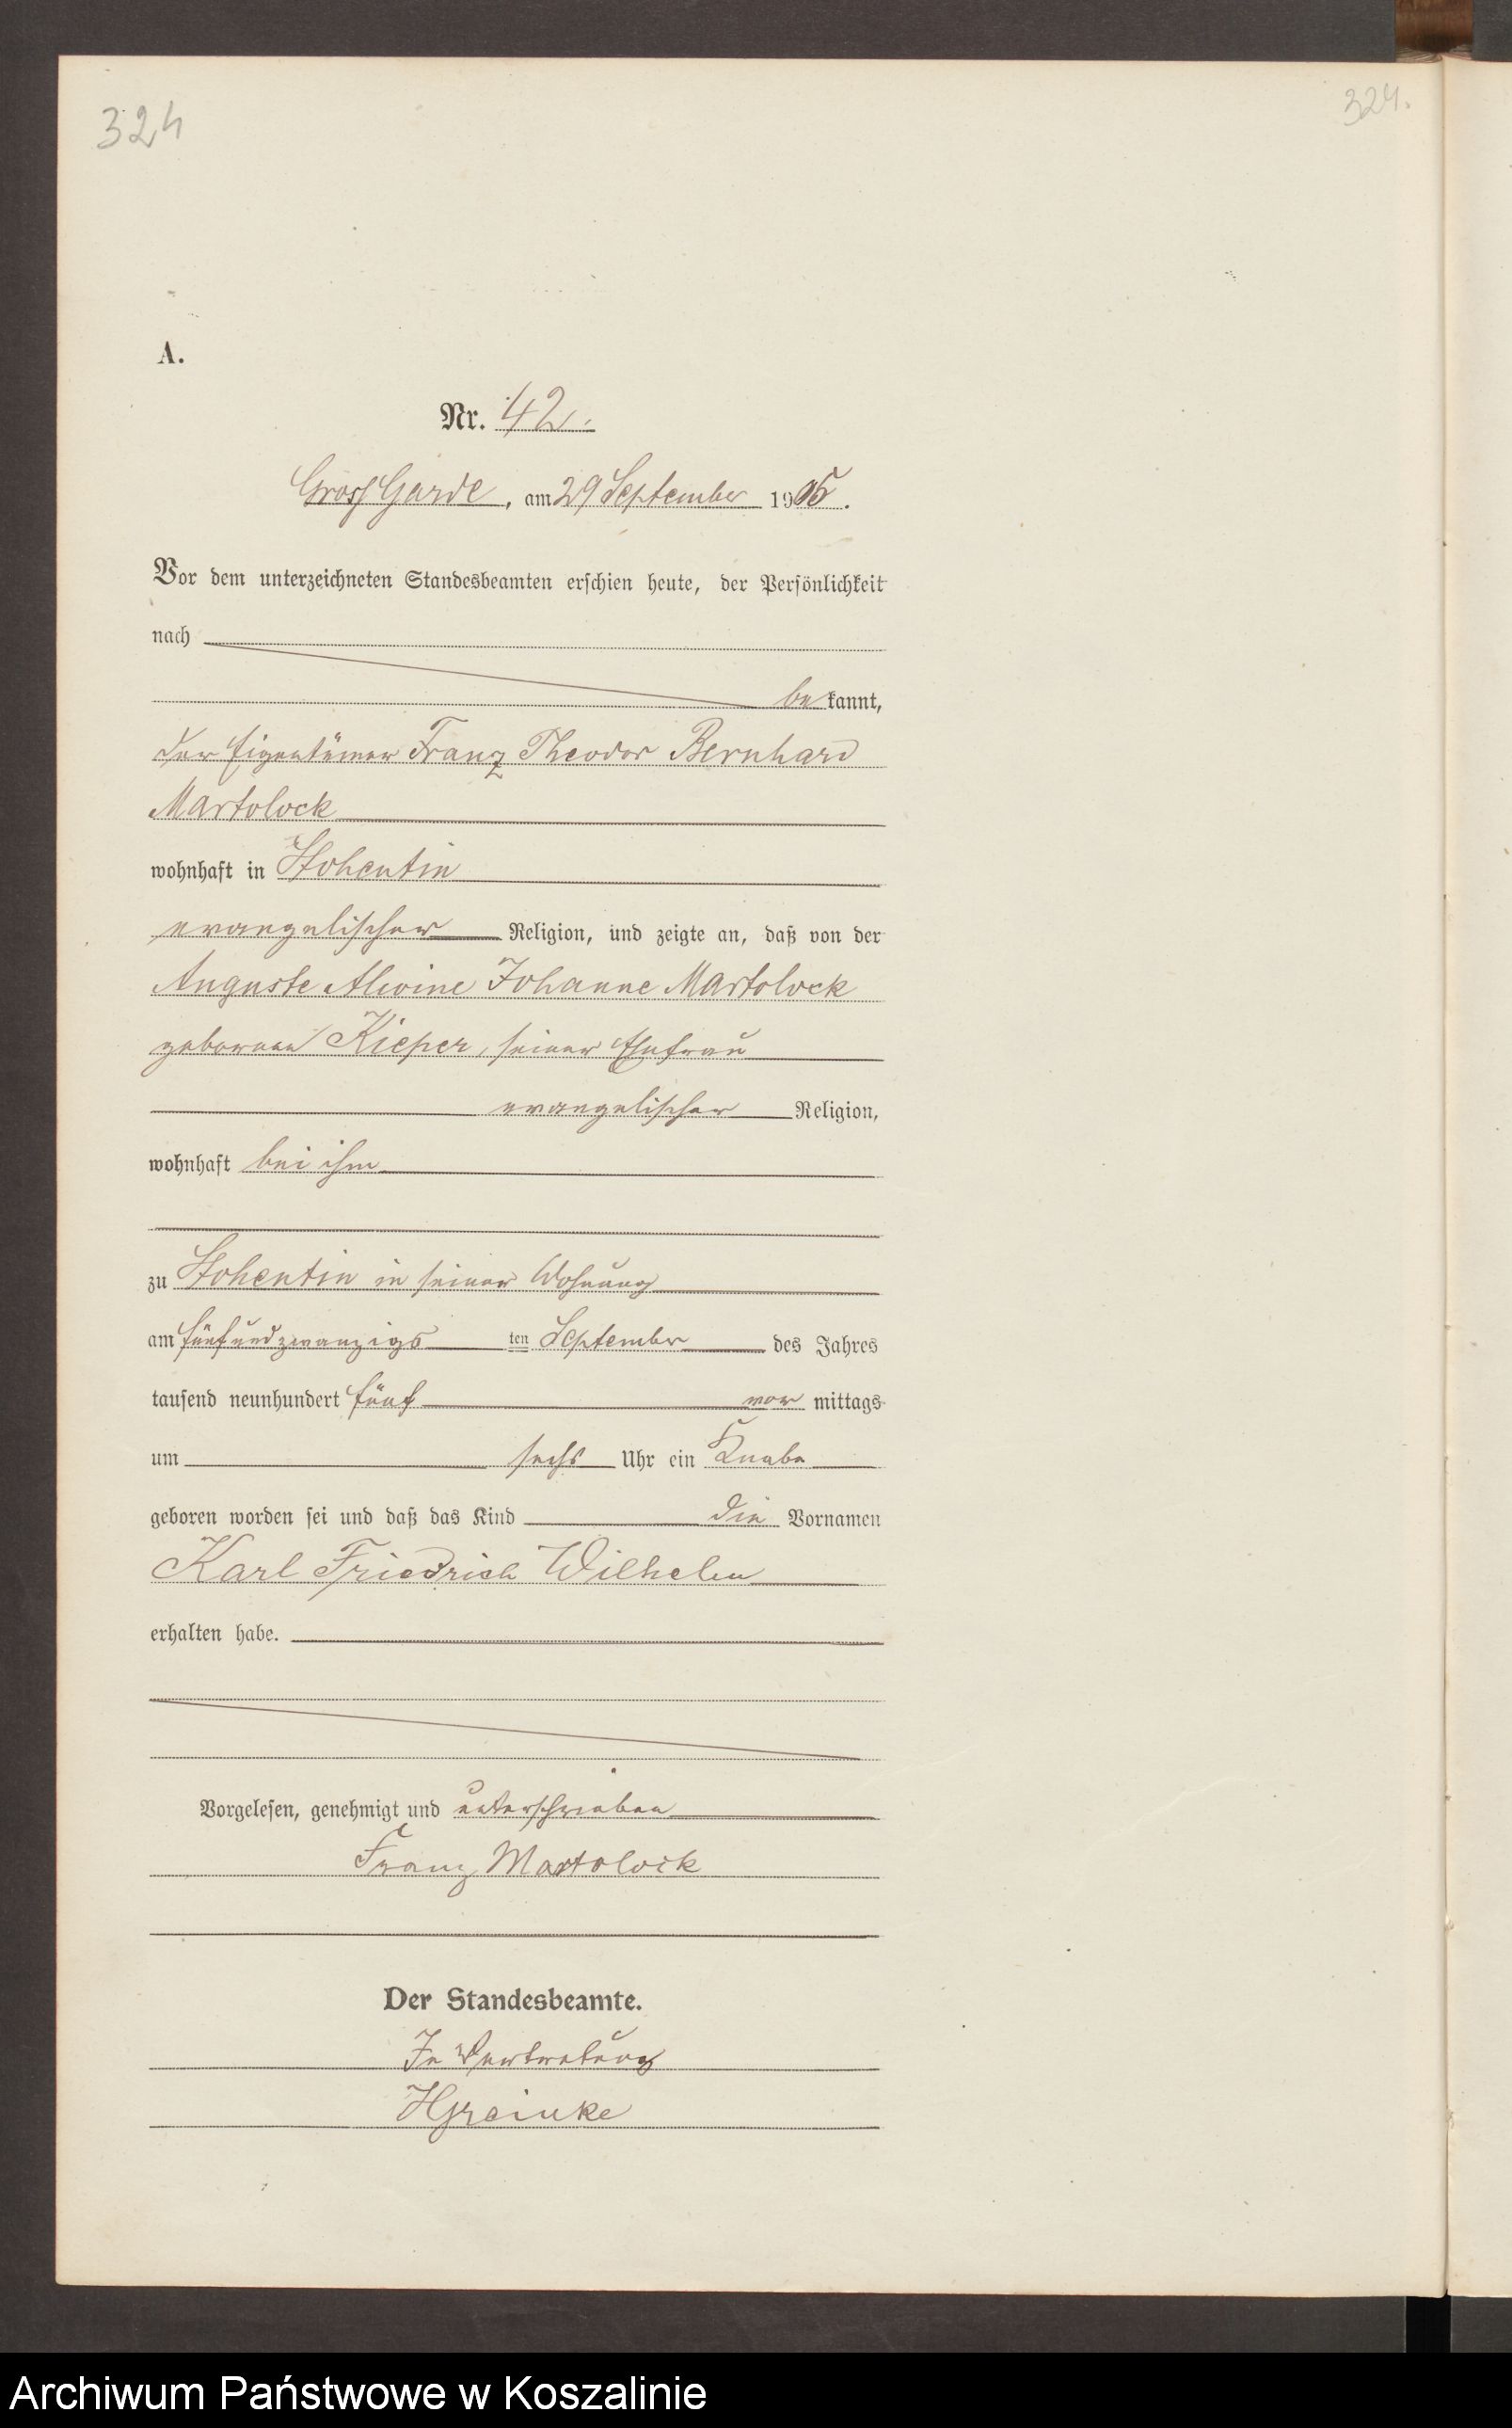 324
324.
A.
Nr. 42.
Gross Garde, am 29 September 1905.
Vor dem unterzeichneten Standesbeamten erschien heute, der Persönlichkeit
nach
bekannt,
der Eigentümer Franz Theodor Bernhard
Martolock
wohnhaft in Stohentin
evangelischer Religion, und zeigte an, daß von der
Auguste Alwine Johanne Martolock
geborenen Kieper, seiner Ehefrau
evangelischer Religion,
wohnhaft bei ihm
zu Stohentin in seiner Wohnung
am fünfundzwanzigsten September des Jahres
tausend neunhundert fünf vor mittags
um sechs Uhr ein Knabe
geboren worden sei und daß das Kind die Vornamen
Karl Friedrich Wilhelm
erhalten habe.
Vorgelesen, genehmigt und unterschrieben
Franz Martolock
Der Standesbeamte.
In Vertretung
Archiwum Państwowe w Koszalinie